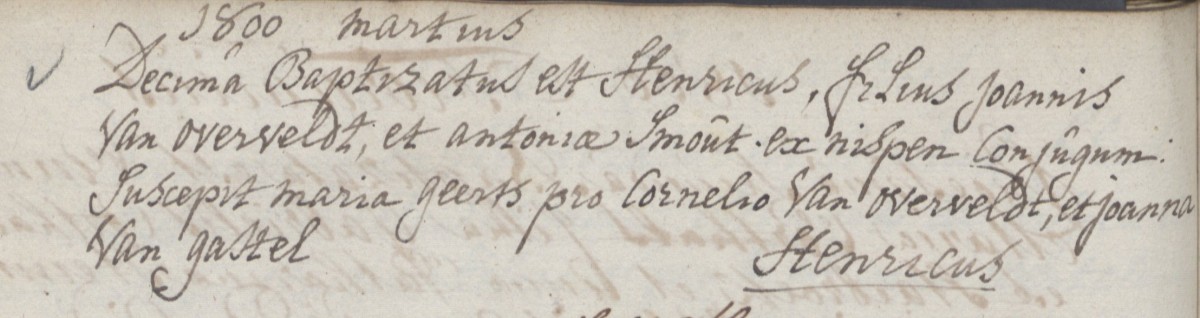 1800 martius
Decimâ Baptizatus est Henricus, filius joannis
Van overveldt, et antoniæ Smoût ex nispen Conjûgum.
Suscepit maria geerts pro Cornelio Van overveldt, et joanna
Van gastel
Henricus